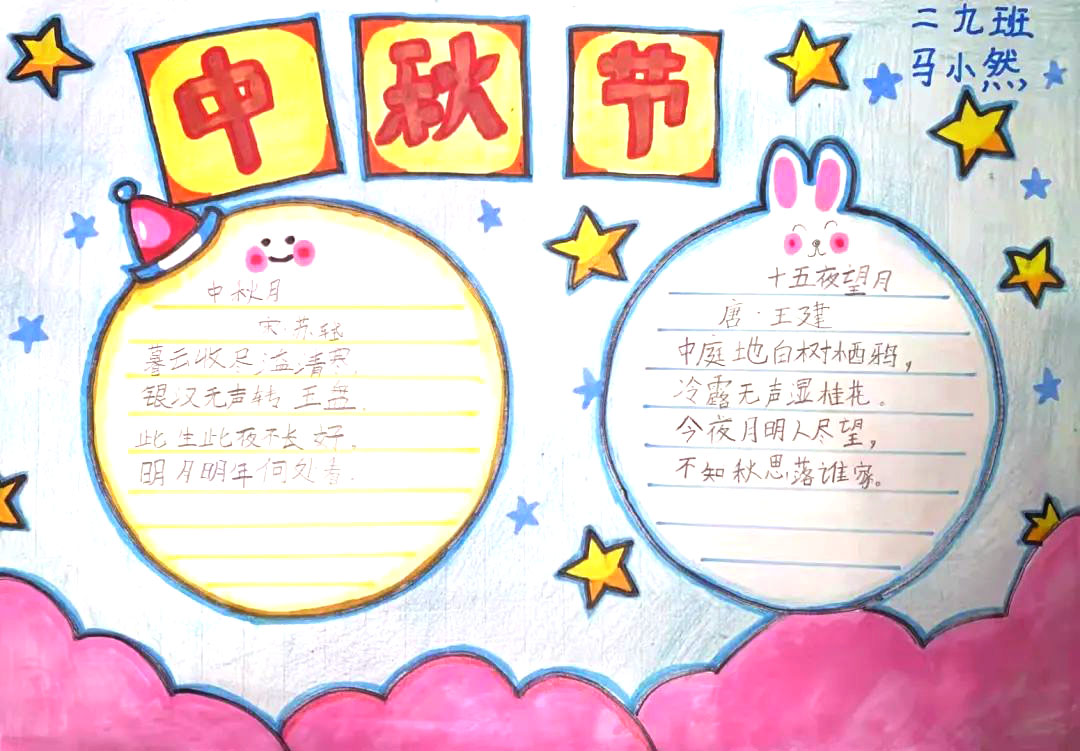 中秋节
二九班
马小然
中秋月
宋·苏轼
暮云收尽溢清寒,
银汉无声转玉盘.
此生此夜不长好,
明月明年何处看.
十五夜望月
唐·王建
中庭地白树栖鸦,
冷露无声湿桂花。
今夜月明人尽望,
不知秋思落谁家。